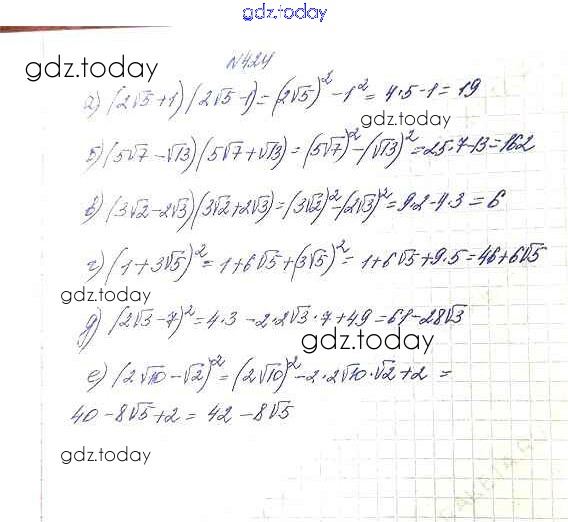 gdz.today
№424
gdz.today
а) (2√5+1)(2√5-1)=(2√5)²-1²=4·5-1=19
gdz.today
б) (5√7-√13)(5√7+√13)=(5√7)²-(√13)²=25·7-13=162
в) (3√2-2√3)(3√2+2√3)=(3√2)²-(2√3)²=9·2-4·3=6
г) (1+3√5)²=1+6√5+(3√5)²=1+6√5+9·5=46+6√5
gdz.today
д) (2√3-7)²=4·3-2·2√3·7+49=61-28√3
gdz.today
е) (2√10-√2)²=(2√10)²-2·2√10·√2+2=
40-8√5+2=42-8√5
gdz.today